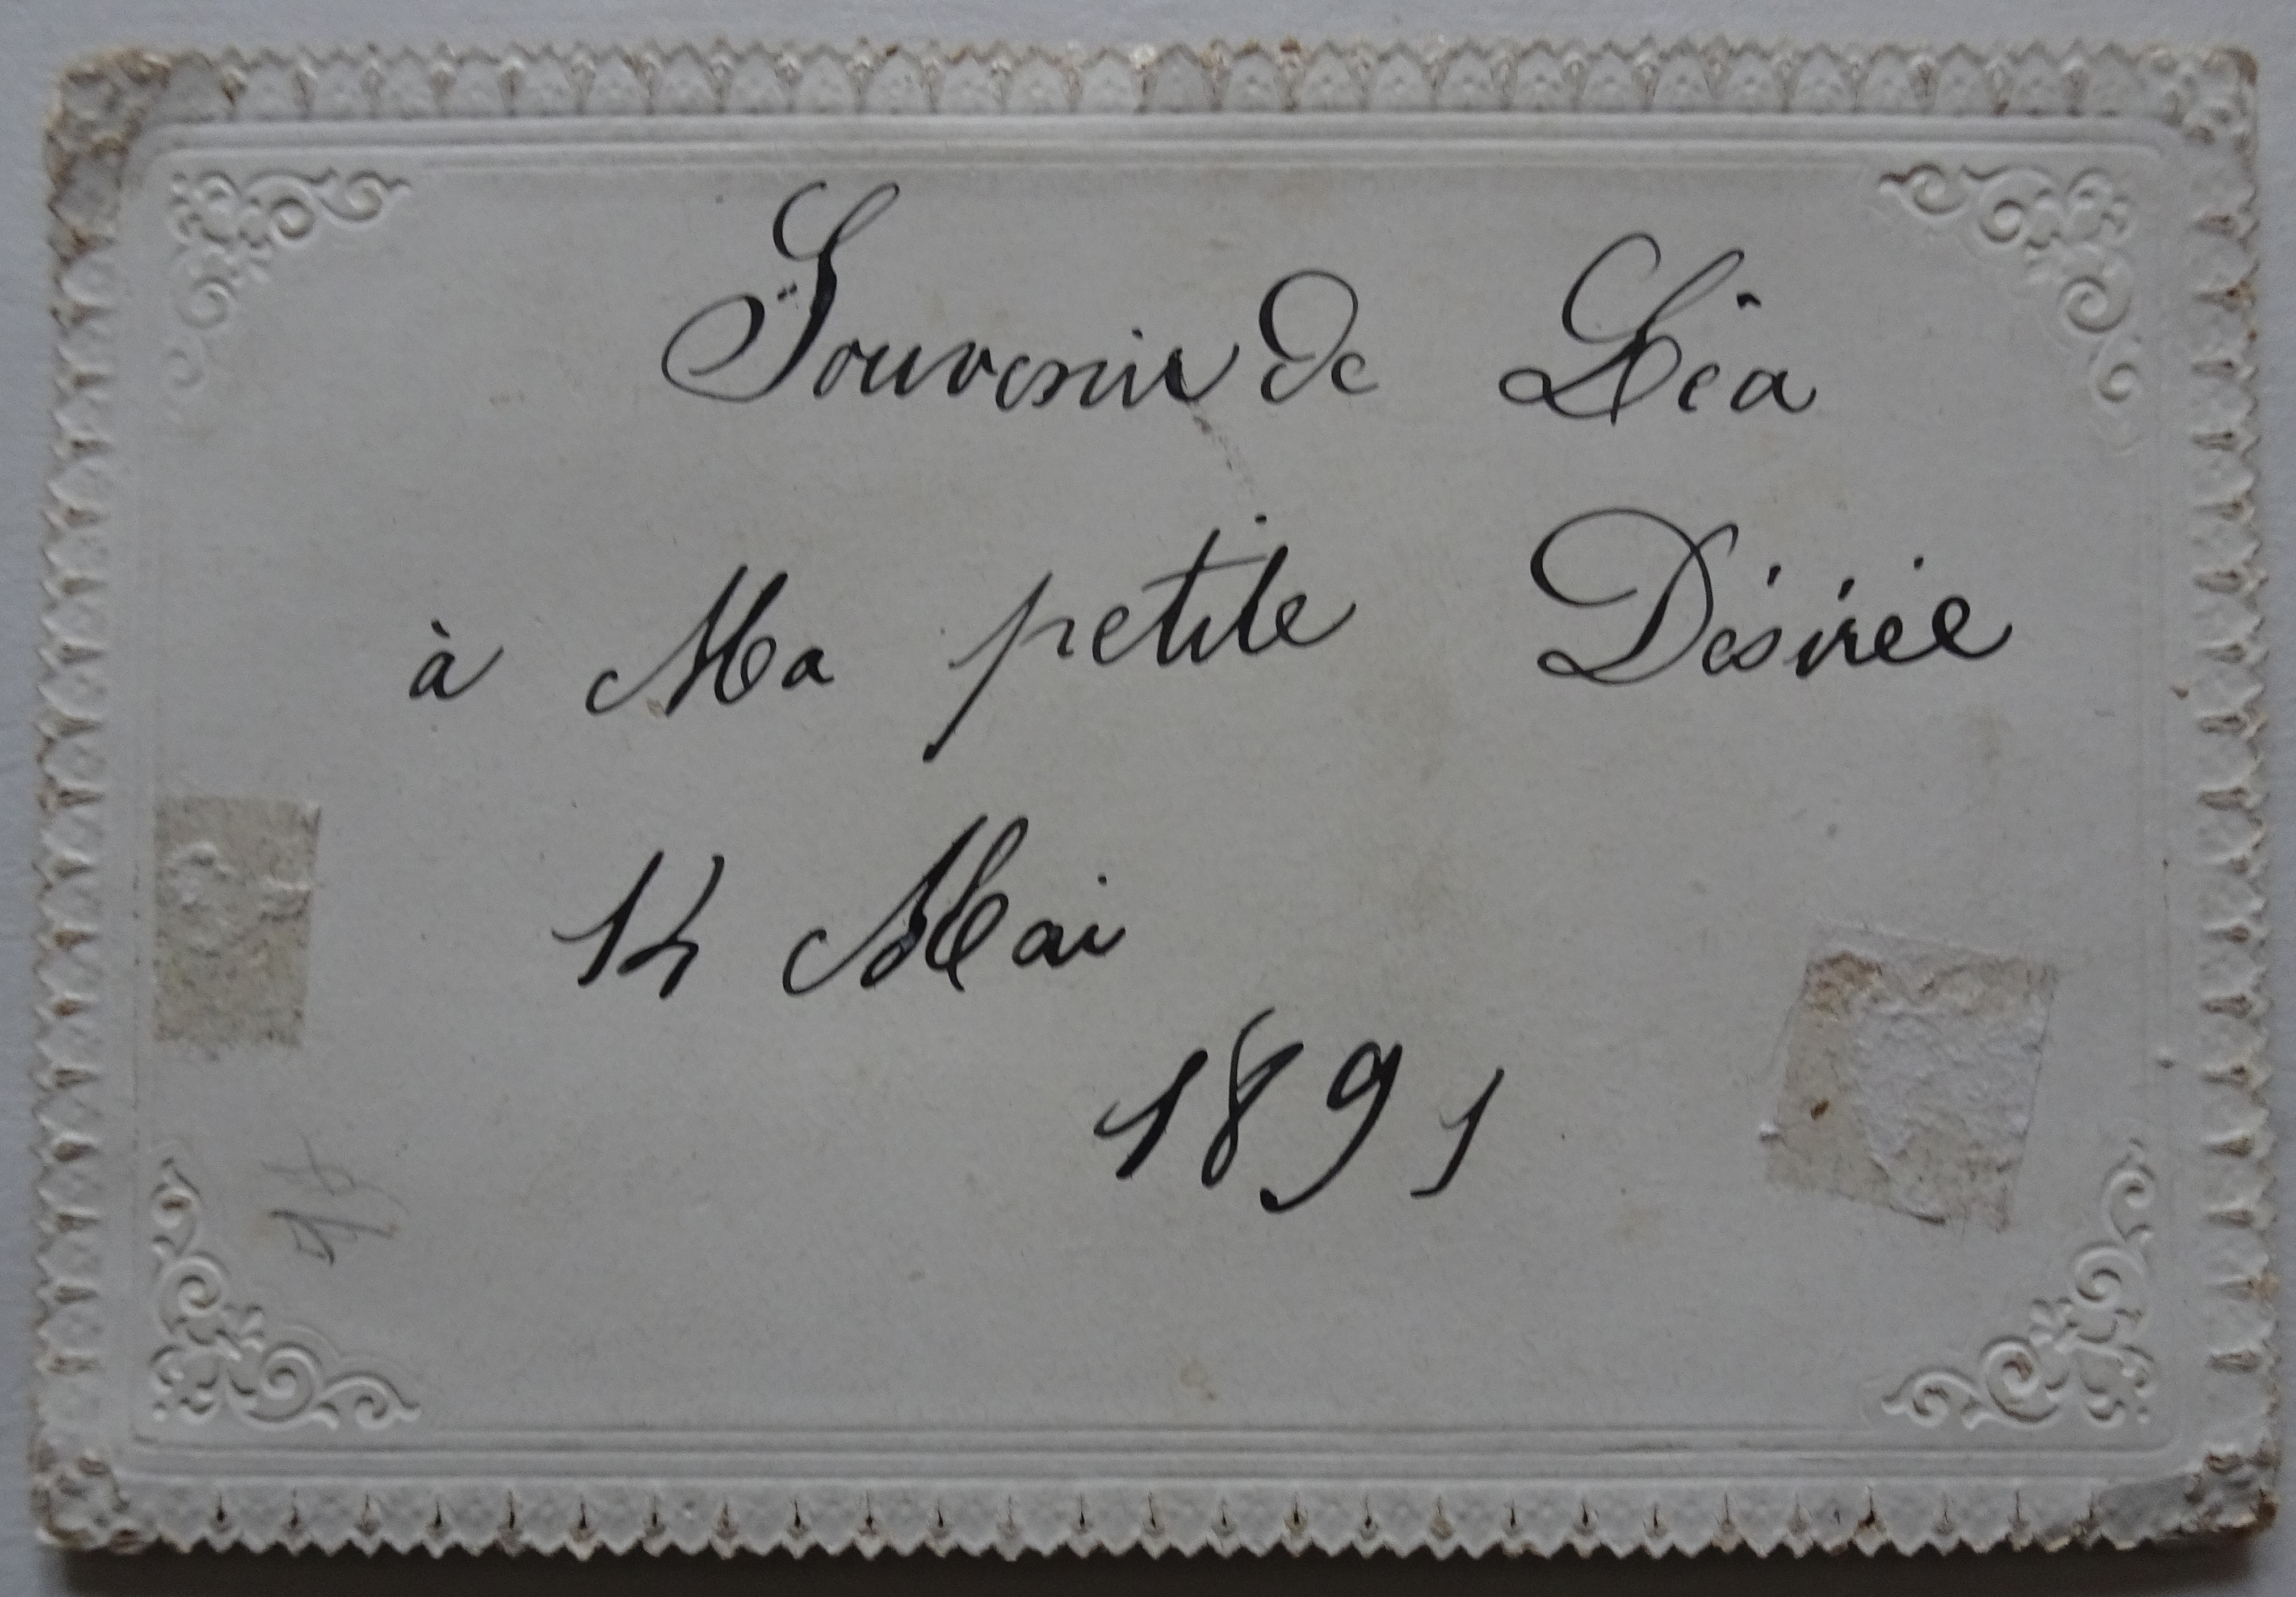 Souvenir de Léa
à Ma petite Désirée
14 Mai
1891